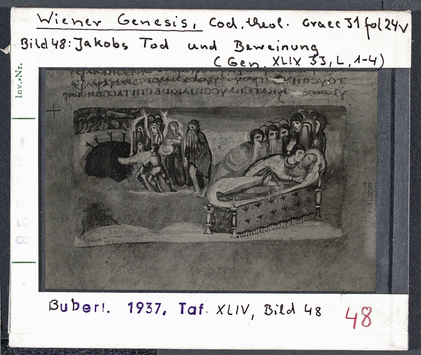 Wiener Genesis, Cod. theol. Graec 31 fol 24v
Bild 48: Jakobs Tod und Beweinung
(Gen. XLIX 33, L, 1-4)
Inv.-Nr.
Buberl. 1937, Taf. XLIV, Bild 48
48